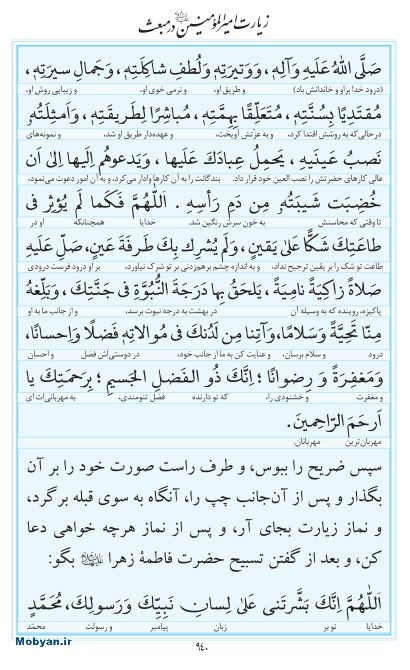 زیارت امیرالمؤمنین علیه‌السلام در مبعث
صَلَّى اللهُ عَلَيهِ وَآلِهِ، وَوَتيرَتِهِ، وَلُطفِ شاكِلَتِهِ، وَجَمالِ سيرَتِهِ،
(درود خدا بر او و خاندانش باد) و طریق او، و نرمی خوی او، و زیبایی روش او،
مُقتَدِيًا بِسُنَّتِهِ، مُتَعَلِّقًا بِهِمَّتِهِ، مُباشِرًا لِطَريقَتِهِ، وَاَمثِلَتُهُ
درحالی‌که به روشش اقتدا کرد، و به عزتش آویخت، و عهده‌دار طریق او شد، و نمونه‌های
نَصبُ عَينَيهِ، يَحمِلُ عِبادَكَ عَلَيها، وَيَدعوهُم اِلَيها اِلىٰ اَن
عالی کارهای حضرتش را نصب العین خود قرار داد، بندگانت را به آن کارها وادار می‌کرد، و به آن امور دعوت می‌نمود،
خُضِبَت شَيبَتُهُ مِن دَمِ رَأسِهِ. اَللّٰهُمَّ فَكَما لَم يُؤثِر فى
تا وقتی که محاسنش به خون سرش رنگین شد. خدایا همچنانکه او در
طاعَتِكَ شَكًّا عَلىٰ يَقينٍ، وَلَم يُشرِك بِكَ طَرفَةَ عَينٍ، صَلِّ عَلَيهِ
طاعت تو شک را بر یقین ترجیح نداد، و به اندازه چشم برهم‌زدنی بر تو شرک نیاورد، بر او درود فرست درودی
صَلاةً زاكِيَةً نامِيَةً، يَلحَقُ بِها دَرَجَةَ النُّبُوَّةِ فى جَنَّتِكَ، وَبَلِّغهُ
پاکیزه، روینده که به وسیله آن در بهشت به درجه نبوت برسد، و از جانب ما به او
مِنّا تَحِيَّةً وَسَلامًا، وَآتِنا مِن لَدُنكَ فى مُوالاتِهِ فَضلًا وَاِحسانًا،
درود و سلام برسان، و عنایت کن به ما از جانب خود، در دوستی‌اش فضل و احسان
وَمَغفِرَةً وَ رِضوانًا؛ اِنَّكَ ذُو الفَضلِ الجَسيمِ؛ بِرَحمَتِكَ يا
و مغفرت و خشنودی را، که تو دارنده فضل تنومندی، به مهربانی‌ات ای
اَرحَمَ الرّاحِمينَ.
مهربان‌ترین مهربانان.
سپس ضریح را ببوس، و طرف راست صورت خود را بر آن
بگذار و پس از آن‌جانب چپ را، آنگاه به سوی قبله برگرد،
و نماز زیارت بجای آر، و پس از نماز هرچه خواهی دعا
کن، و بعد از گفتن تسبیح حضرت فاطمهٔ زهرا بگو:
اَللّٰهُمَّ اِنَّكَ بَشَّرتَنى عَلىٰ لِسانِ نَبِيِّكَ وَرَسولِكَ، مُحَمَّدٍ
خدایا تو بر زبان پیامبر و رسولت محمّد
۹۴۰
Mobyan.ir